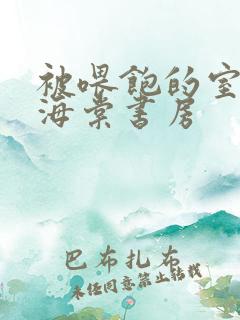 被喂饱的室
海棠书房
巴布扎布
未经同意禁止转载